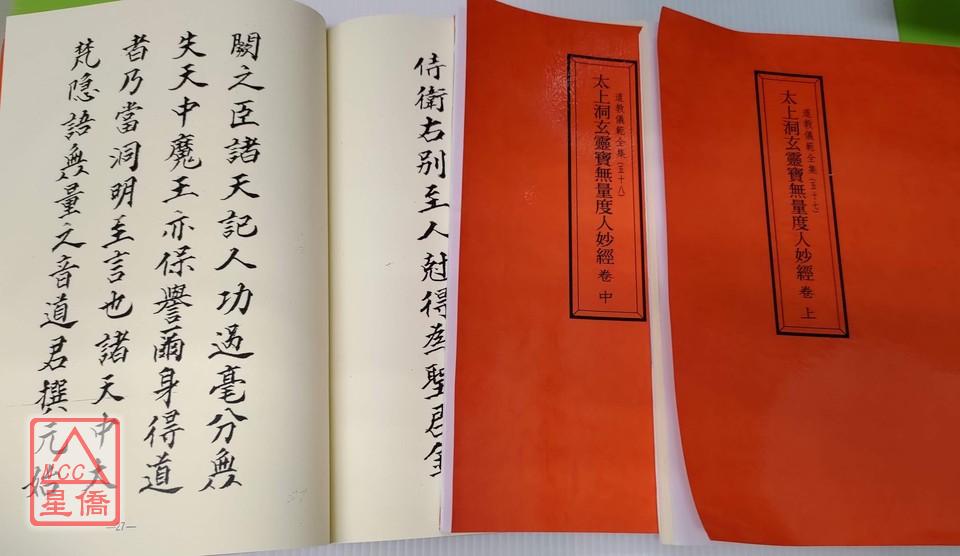 道教儀範全集(五十七)
太上洞玄靈寶無量度人妙經 卷 上
道教儀範全集(五十八)
太上洞玄靈寶無量度人妙經 卷 中
侍衛右別至人尅得為聖君金
闕之臣諸天記人功過毫分無
失天中魔王亦保譽爾身得道
者乃當洞明至言也諸天中大
梵隱語無量之音道君撰元始
—27—
NCC
星僑